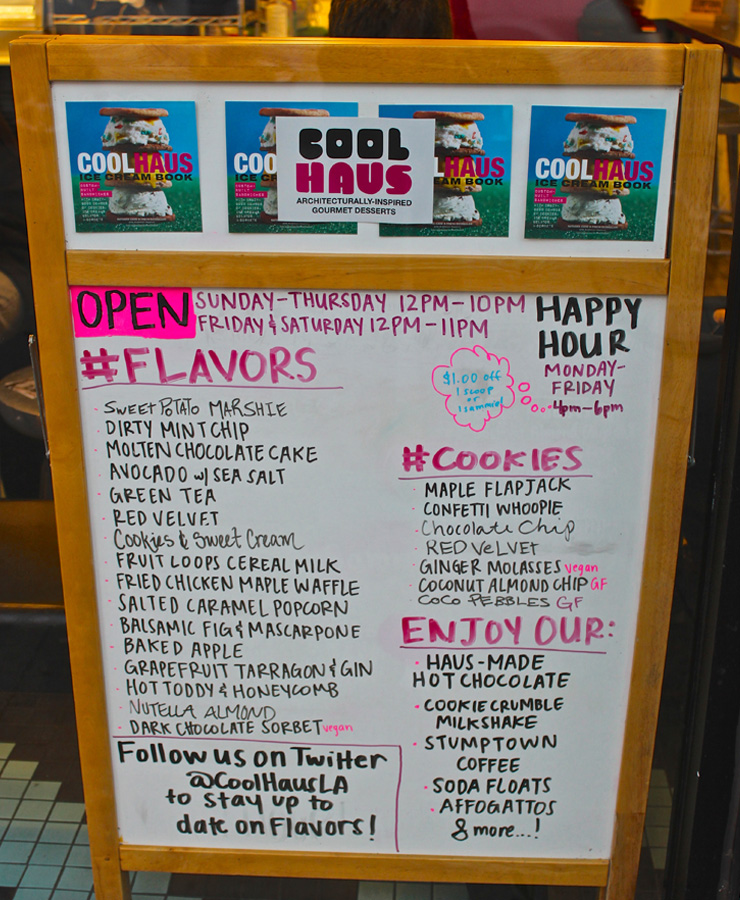 COOLHAUS
ICE CREAM BOOK
COO
COOL
HAUS
ARCHITECTURALLY-INSPIRED
GOURMET DESSERTS
LHAUS
AM BOOK
COOLHAUS
ICE CREAM BOOK
OPEN SUNDAY-THURSDAY 12PM-10PM
FRIDAY & SATURDAY 12PM-11PM
HAPPY
HOUR
MONDAY-
FRIDAY
4pm-6pm
$1.00 off
1 scoop
or
1 sammie!
#FLAVORS
· SWEET POTATO MARSHIE
· DIRTY MINT CHIP
· MOLTEN CHOCOLATE CAKE
· AVOCADO w/ SEA SALT
· GREEN TEA
· RED VELVET
· Cookies & Sweet Cream
· FRUIT LOOPS CEREAL MILK
· FRIED CHICKEN MAPLE WAFFLE
· SALTED CARAMEL POPCORN
· BALSAMIC FIG & MASCARPONE
· BAKED APPLE
· GRAPEFRUIT TARRAGON & GIN
· HOT TODDY & HONEYCOMB
· NUTELLA ALMOND
· DARK CHOCOLATE SORBET vegan
#COOKIES
· MAPLE FLAPJACK
· CONFETTI WHOOPIE
· Chocolate Chip
· RED VELVET
· GINGER MOLASSES vegan
· COCONUT ALMOND CHIP GF
· COCO PEBBLES GF
ENJOY OUR:
· HAUS-MADE
HOT CHOCOLATE
· COOKIE CRUMBLE
MILKSHAKE
· STUMPTOWN
COFFEE
· SODA FLOATS
· AFFOGATTOS
& more...!
Follow us on Twitter
@CoolHausLA
to stay up to
date on Flavors!